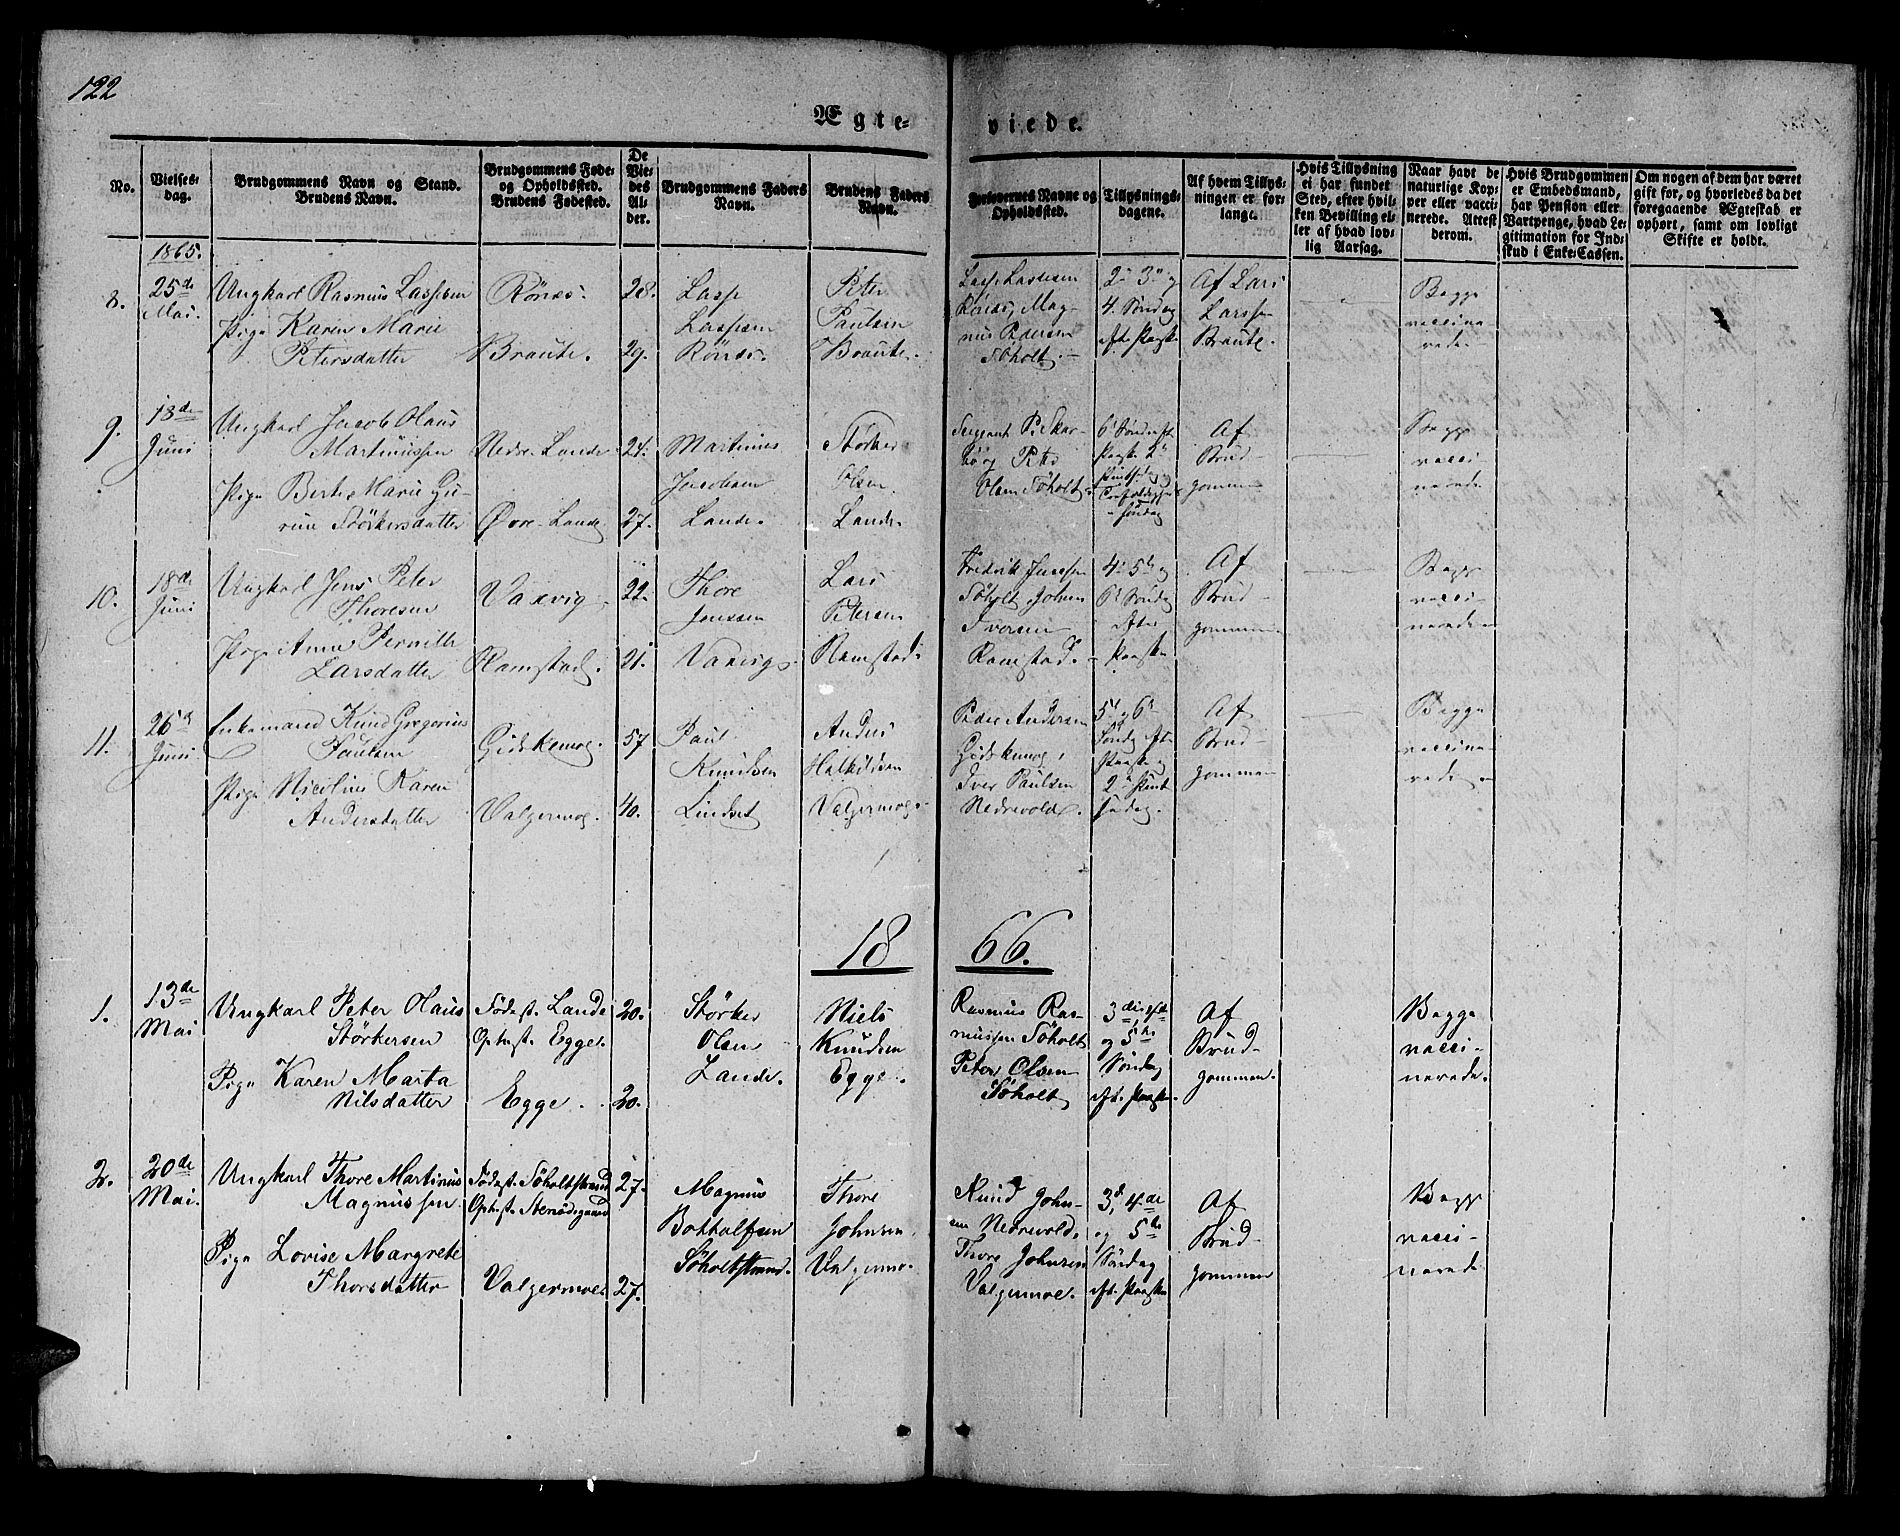 122
Ægte-
viede.
No.
Vielses-
dag.
Brudgommens Navn og Stand.
Brudens Navn.
Brudgommens Føde-
og Opholdssted.
Brudens Fødested.
De
Vie-
des
Al-
der.
Brudgommens Faders
Navn.
Brudens Faders
Navn.
Forlovernes Navne og
Opholdssted.
Tillysnings-
dagene.
Af hvem Tillys-
ningen er for-
lange.
Hvis Tillysning
ei har fundet
Sted, efter hvil-
ken Bevilling el-
ler af hvad lov-
lig Aarsag.
Naar havt de
naturlige Kop-
per eller vacci-
nerede. Attest
derom.
Hvis Brudgommen
er Embedsmand,
har Pension eller
Vartpenge, hvad Le-
gitimation for Ind-
skud i Enke-Cassen.
Om nogen af dem har været
gift før, og hvorledes da det
foregaaende Ægteskab er
ophørt, samt om lovligt
Skifte er holdt.
1865.
8.
25de
Mai.
Ungkarl Rasmus Lassesen
Pige Karen Marie
Petersdatter
Rönes.
Braute.
28.
29.
Lasse
Lassesen
Rönes.
Peter
Paulsen
Braute.
Lasse Lassesen
Rönes, Mag-
nus Pedersen
Söholt.
2den 3de og
4. Söndag
eft. Paaske
Af Lars
Larssen
Braute.
Begge
vaccine-
rede.
9.
18de
Juni
Ungkarl Jacob Olaus
Martinussen
Pige Berthe Marie Gu-
rine Störkersdatter
Nedre-Lande
Øvre-Lande
24.
27.
Martinus
Jacobsen
Lande.
Störker
Olsen
Lande.
Sergeant P. Skar-
Peter
Olsen Söholt
6te Söndag eft.
Paaske 2den
Söndag
Af
Brud-
gommen
Begge
vacci-
nerede
10.
18de
Juni
Ungkarl Jens Peter
Thoresen
Pige Anne Pernille
Larsdatter
Vaxvig
Ramstad.
22.
21.
Thore
Jenssen
Vaxvig.
Lars
Petersen
Ramstad.
Fredrik Jenssen
Söholt Johan
Iversen
Ramstad.
4de 5te og
6te Söndag
efter
Paaske
Af
Brud-
gommen
Begge
vacci-
nerede
11.
26de
Juni
Enkemand Knud Gregorius
Paulsen
Pige Nicoline Karen
Andersdatter
Gidskemog.
Valgermog.
57
40.
Paul
Knudsen
Lindset
Anders
Halkildsen
Valgermog.
Peder Andersen
Gidskemog,
Iver Paulsen
Nedrevold.
5te og 6te
Söndag eft.
Paaske og
2den Pintse-
dag.
Af
Brud-
gommen
Begge
vaccine-
rede
18
66.
1.
13de
Mai
Ungkarl Peter Olaus
Störkersen
Pige Karen Marta
Nilsdatter
Födest. Lande
Ophst. Egge.
Egge.
20.
20.
Störker
Olsen
Lande.
Niels
Knudsen
Egge.
Rasmus Ras-
mussen Söholt
Peter Olsen
Söholt
3die, 4de
og 5te
Söndag
eft. Paaske.
Af
Brud-
gommen.
Begge
vacci-
nerede.
2.
20de
Mai.
Ungkarl Thore Martinus
Magnussen
Pige Lovise Margrete
Thorsdatter
Födest. Söholtstrand
Ophst. Stenödegaard
Valgermoe.
27.
27.
Magnus
Bottolfsen
Söholtstrand.
Thore
Johnsen
Valgermo.
Knud John-
sen Nedrevold,
Thore Johnsen
Valgermoe.
3d, 4de
og 5te
Söndag
eft. Paaske
Af
Brud-
gommen
Begge
vacci-
nerede